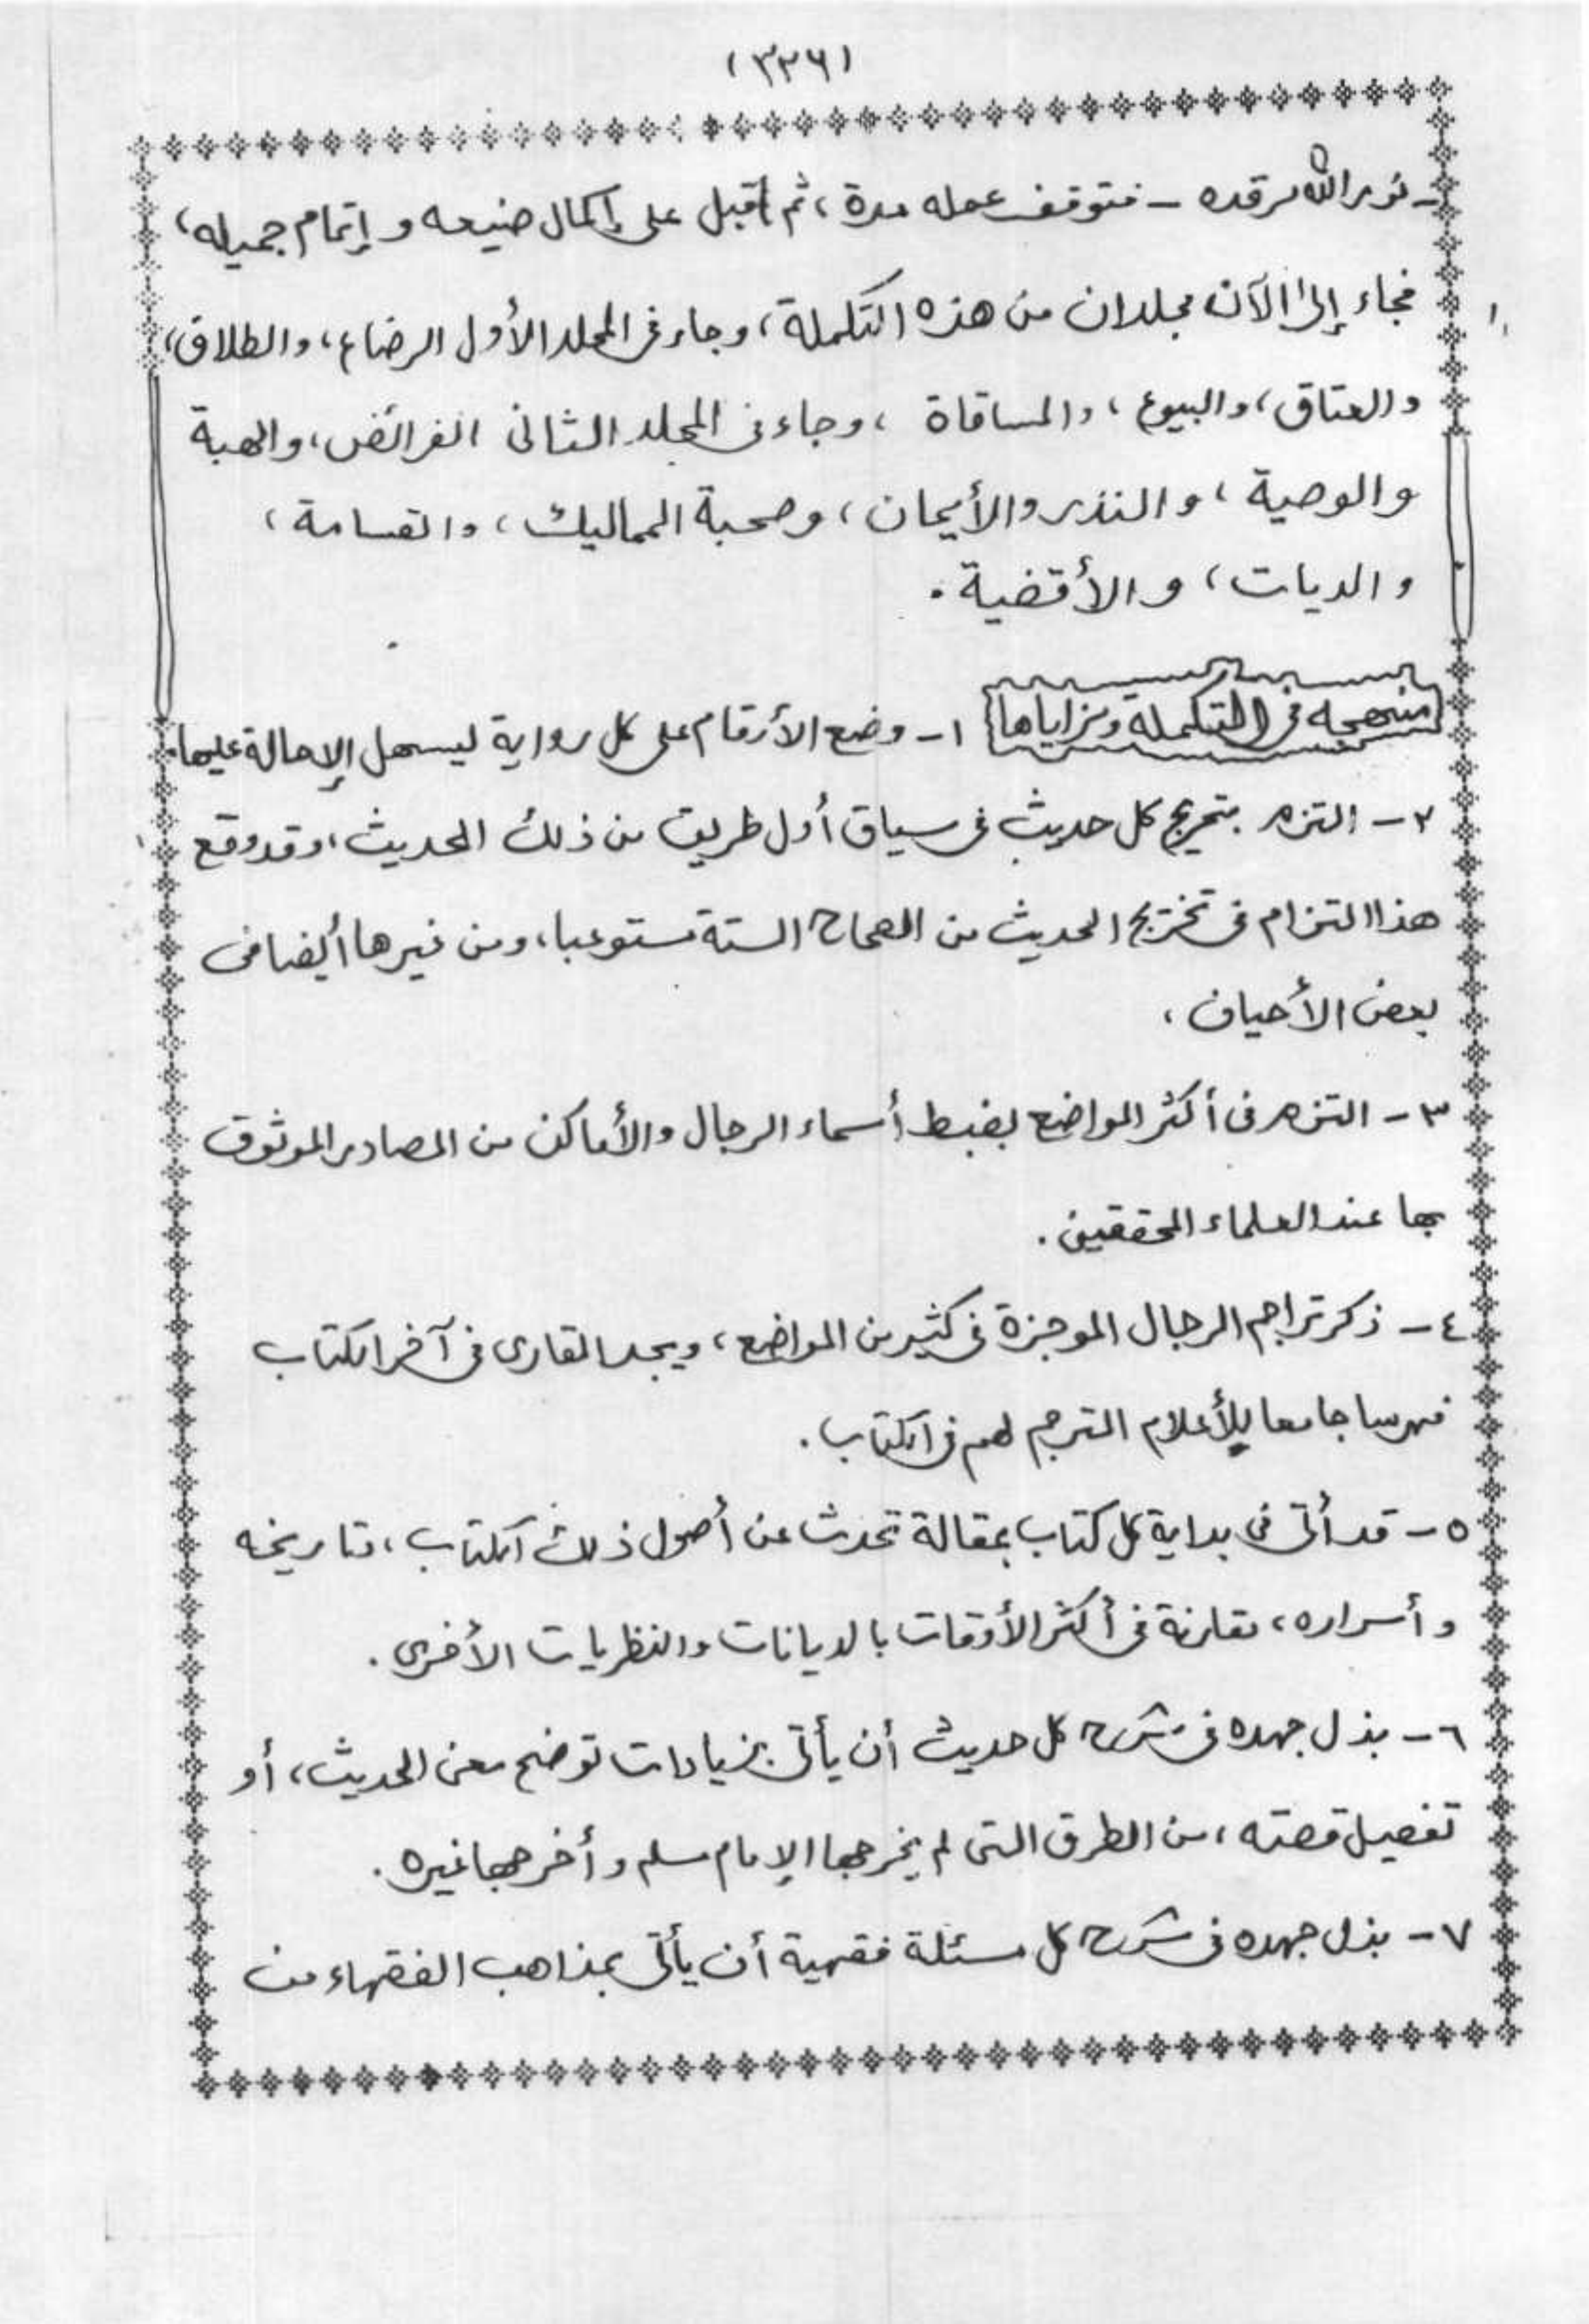 (٣٢٦)
- نور الله مرقده - فتوقف عمله مدة، ثم أقبل على إكمال صنيعه و إتمام جميله،
فجاء إلى الآن مجلدان من هذه التكملة، وجاء فى المجلد الأول الرضاع، والطلاق،
والعتاق، والبيوع، والمساقاة، وجاء فى المجلد الثانى الفرائض، والهبة
والوصية، والنذر والأيمان، وصحبة المماليك، والقسامة،
والديات، والأقضية.
منهجه فى التكملة ومزاياها ١- وضع الأرقام على كل رواية ليسهل الإحالة عليها.
٢- التزم بتخريج كل حديث فى سياق أول طريق من ذلك الحديث، وقد وقع
هذا التزام فى تخريج الحديث من الصحاح الستة مستوعبا، ومن غيرها أيضا فى
بعض الأحيان،
٣- التزم فى أكثر المواضع بضبط أسماء الرجال والأماكن من المصادر الموثوق
بها عند العلماء المحققين.
٤- ذكر تراجم الرجال الموجزة فى كثير من المواضع، ويجد القارى فى آخر الكتاب
فهرسا جامعا للأعلام المترجم لهم فى الكتاب.
٥- قد أتى فى بداية كل كتاب بمقالة تحدث عن أصول ذلك الكتاب، وتاريخه
وأسراره، مقارنة فى أكثر الأوقات بالديانات والنظريات الأخرى.
٦- بذل جهده فى شرح كل حديث أن يأتى بزيادات توضح معنى الحديث، أو
تفصيل قصته، من الطرق التى لم يخرجها الإمام مسلم وأخرجها غيره.
٧- بذل جهده فى شرح كل مسئلة فقهية أن يأتى بمذاهب الفقهاء من